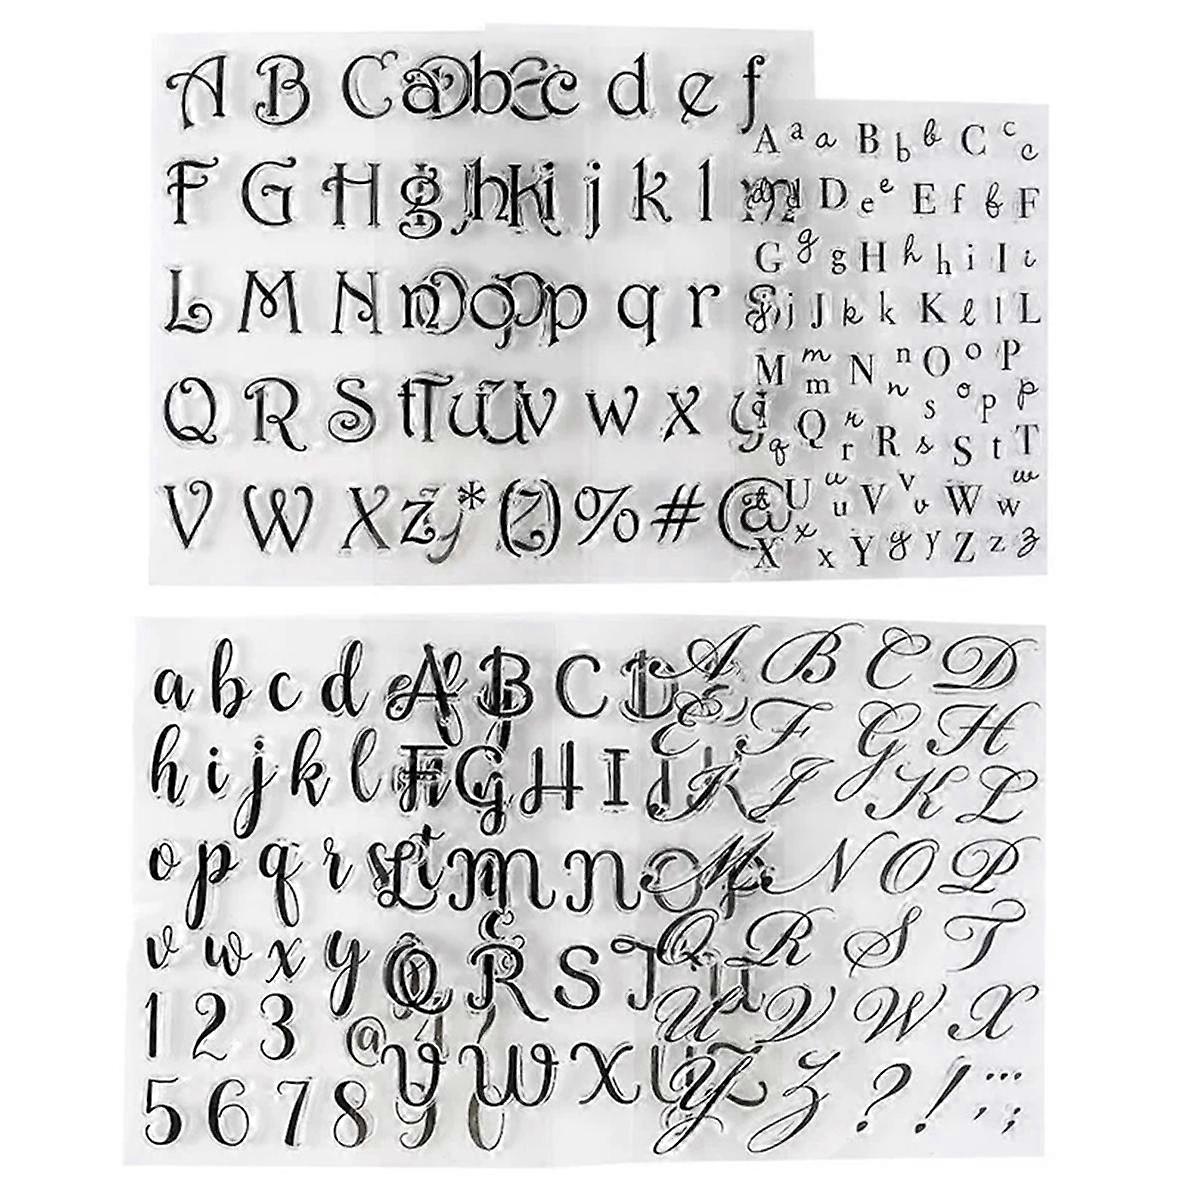 A B C a b c d e f
F G H g h i j k l m
L M N n o p q r s
Q R S t u v w x y
V W X z * ( ) % # @
A a a B b b C c c
d d D e e E f f F
G g g H h h i I i
j j J k k K l l L
M m m N n n O o o P p p
q Q r r R s s S t T
t U u u V v v W w w
X x x Y y y Z z z
a b c d e f g
A B C D E
h i j k l m n
F G H I J K
o p q r s t u
L M N O P
v w x y z
Q R S T U
1 2 3 4
V W X Y Z
5 6 7 8 9 0
@
A B C D
E F G H
I J K L
M N O P
Q R S T
U V W X
Y Z ? ! , ;